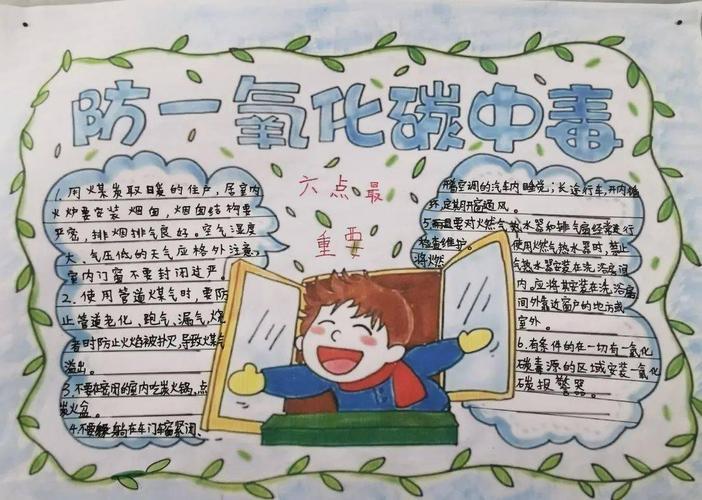 防一氧化碳中毒
六点最
重要
1.用火煤炭取暖的住户,居室内
火炉要安装烟囱,烟囱结构要
严密,排烟排气良好。空气湿度
大、气压低的天气应格外注意,
室内门窗不要封闭过严。
2、使用管道煤气时,要防
止管道老化、跑气、漏气,烧
者时防止火焰被扑灭,导致煤气
溢出。
3.不要在密闭的室内吃炭火锅、点
炭火盆。
4.不要躺在车门车窗紧闭、
开着空调的汽车内睡觉;长途行车,开内循
环,定期开窗通风。
5.要对燃气热水器和排气扇经常进行
检查维护。使用燃气热水器时,禁止
将燃气热水器安装在洗浴房间
内。应将其安装在洗浴房
间外靠近窗户的地方或
室外。
6.有条件的在一切有一氧化
碳毒源的区域安装一氧化
碳报警器。